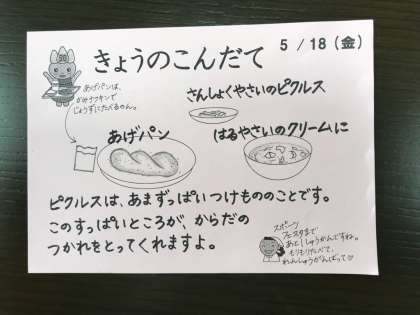 きょうのこんだて
5/18(金)
あげパンは、
かみナフキンで
じょうずにたべるのん。
さんしょくやさいのピクルス
あげパン
はるやさいのクリームに
ピクルスは、あまずっぱいつけもののことです。
このすっぱいところが、からだの
つかれをとってくれますよ。
スポーツ
フェスタまで
あと1しゅうかんですね。
もりもりたべて、
れんしゅうがんばって♡